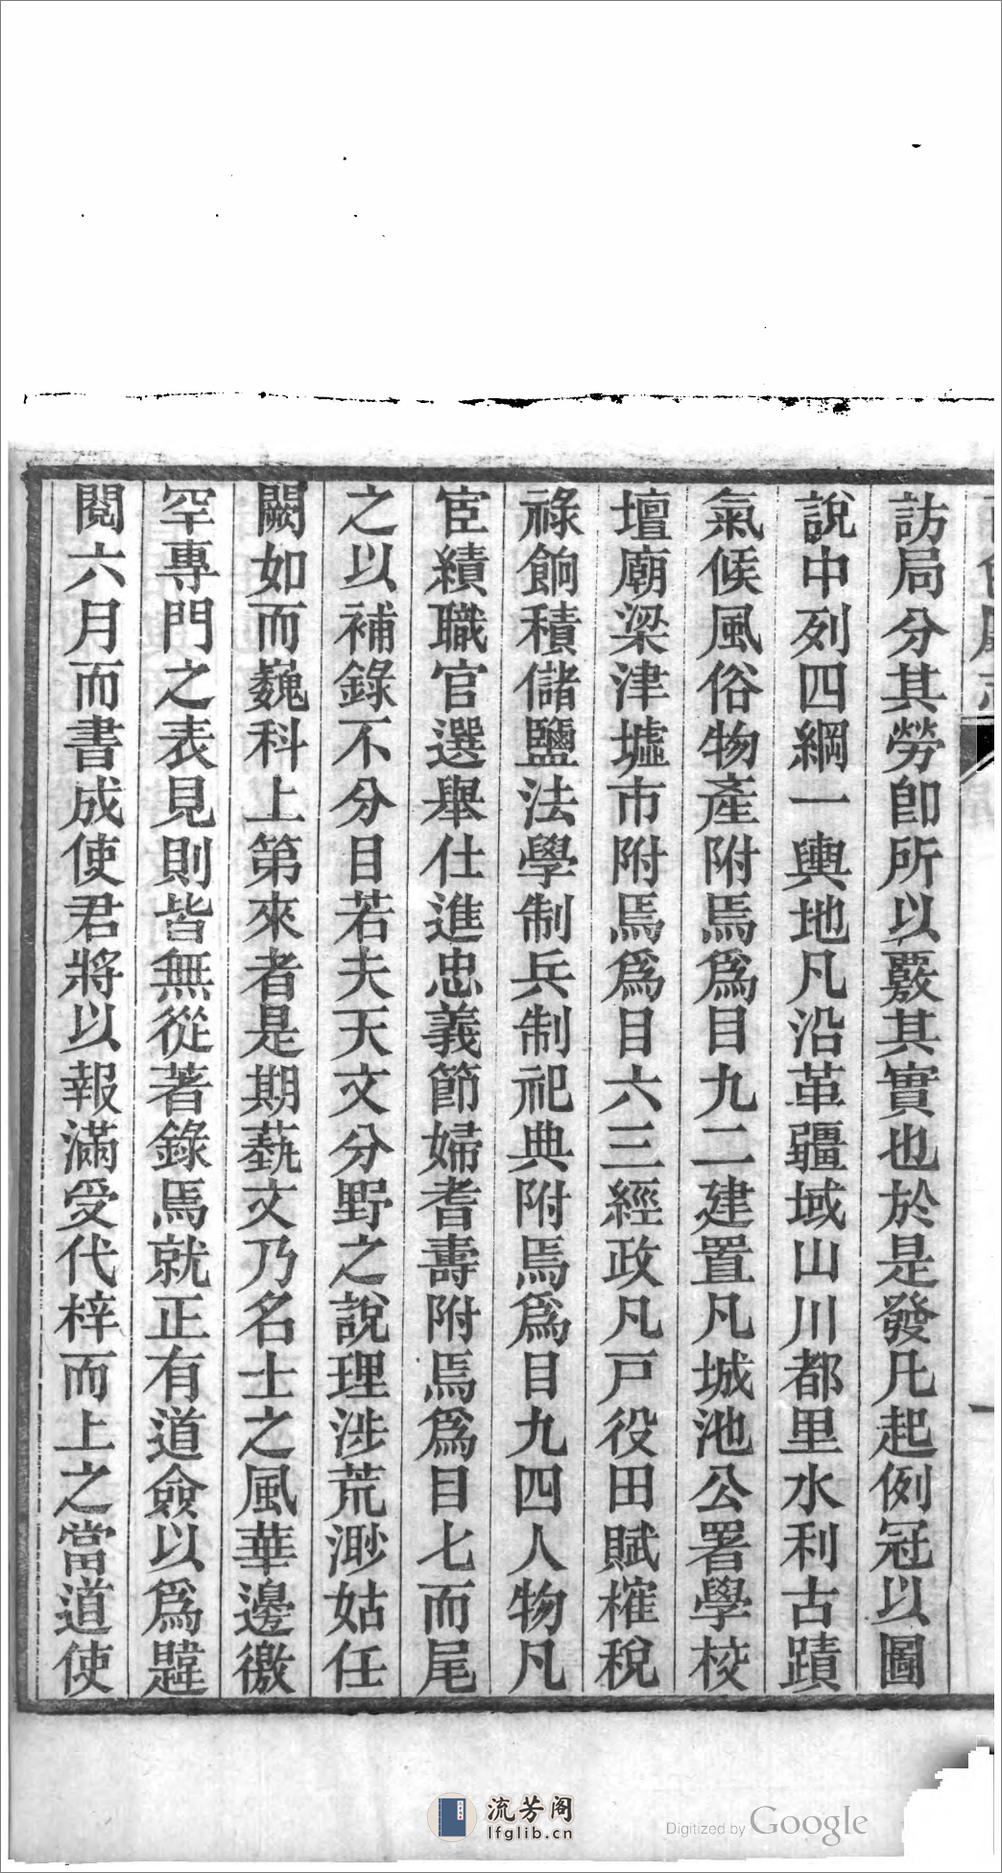 訪局分其勞卽所以覈其實也於是發凡起例冠以圖
說中列四綱一輿地凡沿革疆域山川都里水利古蹟
氣候風俗物產附焉爲目九二建置凡城池公署學校
壇廟梁津墟市附焉爲目六三經政凡戸役田賦榷稅
祿餉積儲鹽法學制兵制祀典附焉爲目九四人物凡
宦績職官選舉仕進忠義節婦耆壽附焉爲目七而尾
之以補錄不分目若夫天文分野之說理涉荒渺姑任
闕如而巍科上第來者是期藝文乃名士之風華邊徼
罕專門之表見則皆無從著錄焉就正有道僉以爲韙
閱六月而書成使君將以報滿受代梓而上之當道使
流芳阁
lfglib.cn
Digitized by Google